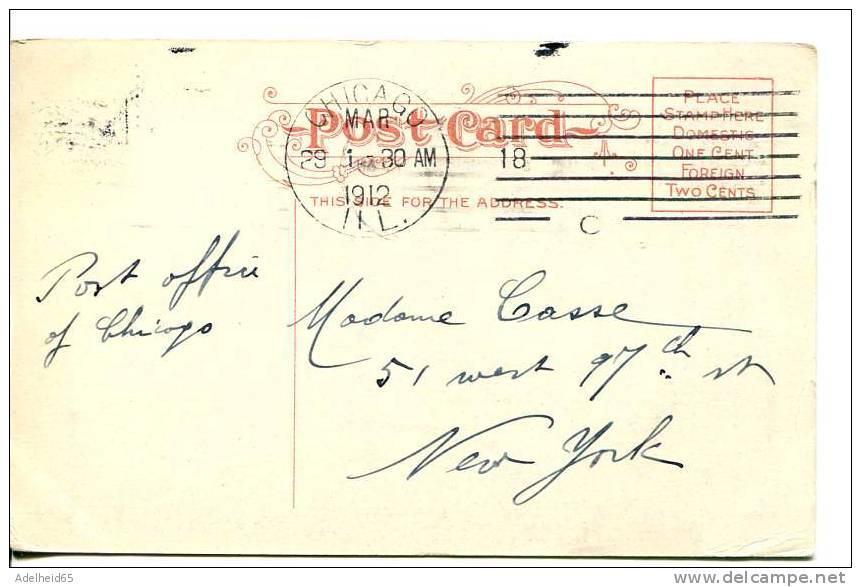 CHICAGO
MAR
29 1-30 AM
1912
ILL.
18
C
Post Card
THIS SIDE FOR THE ADDRESS.
PLACE
STAMP HERE
DOMESTIC
ONE CENT
FOREIGN
TWO CENTS
Post office
of Chicago
Madame Casse
51 west 97th st
New York
Adelheid65
delcampe.net